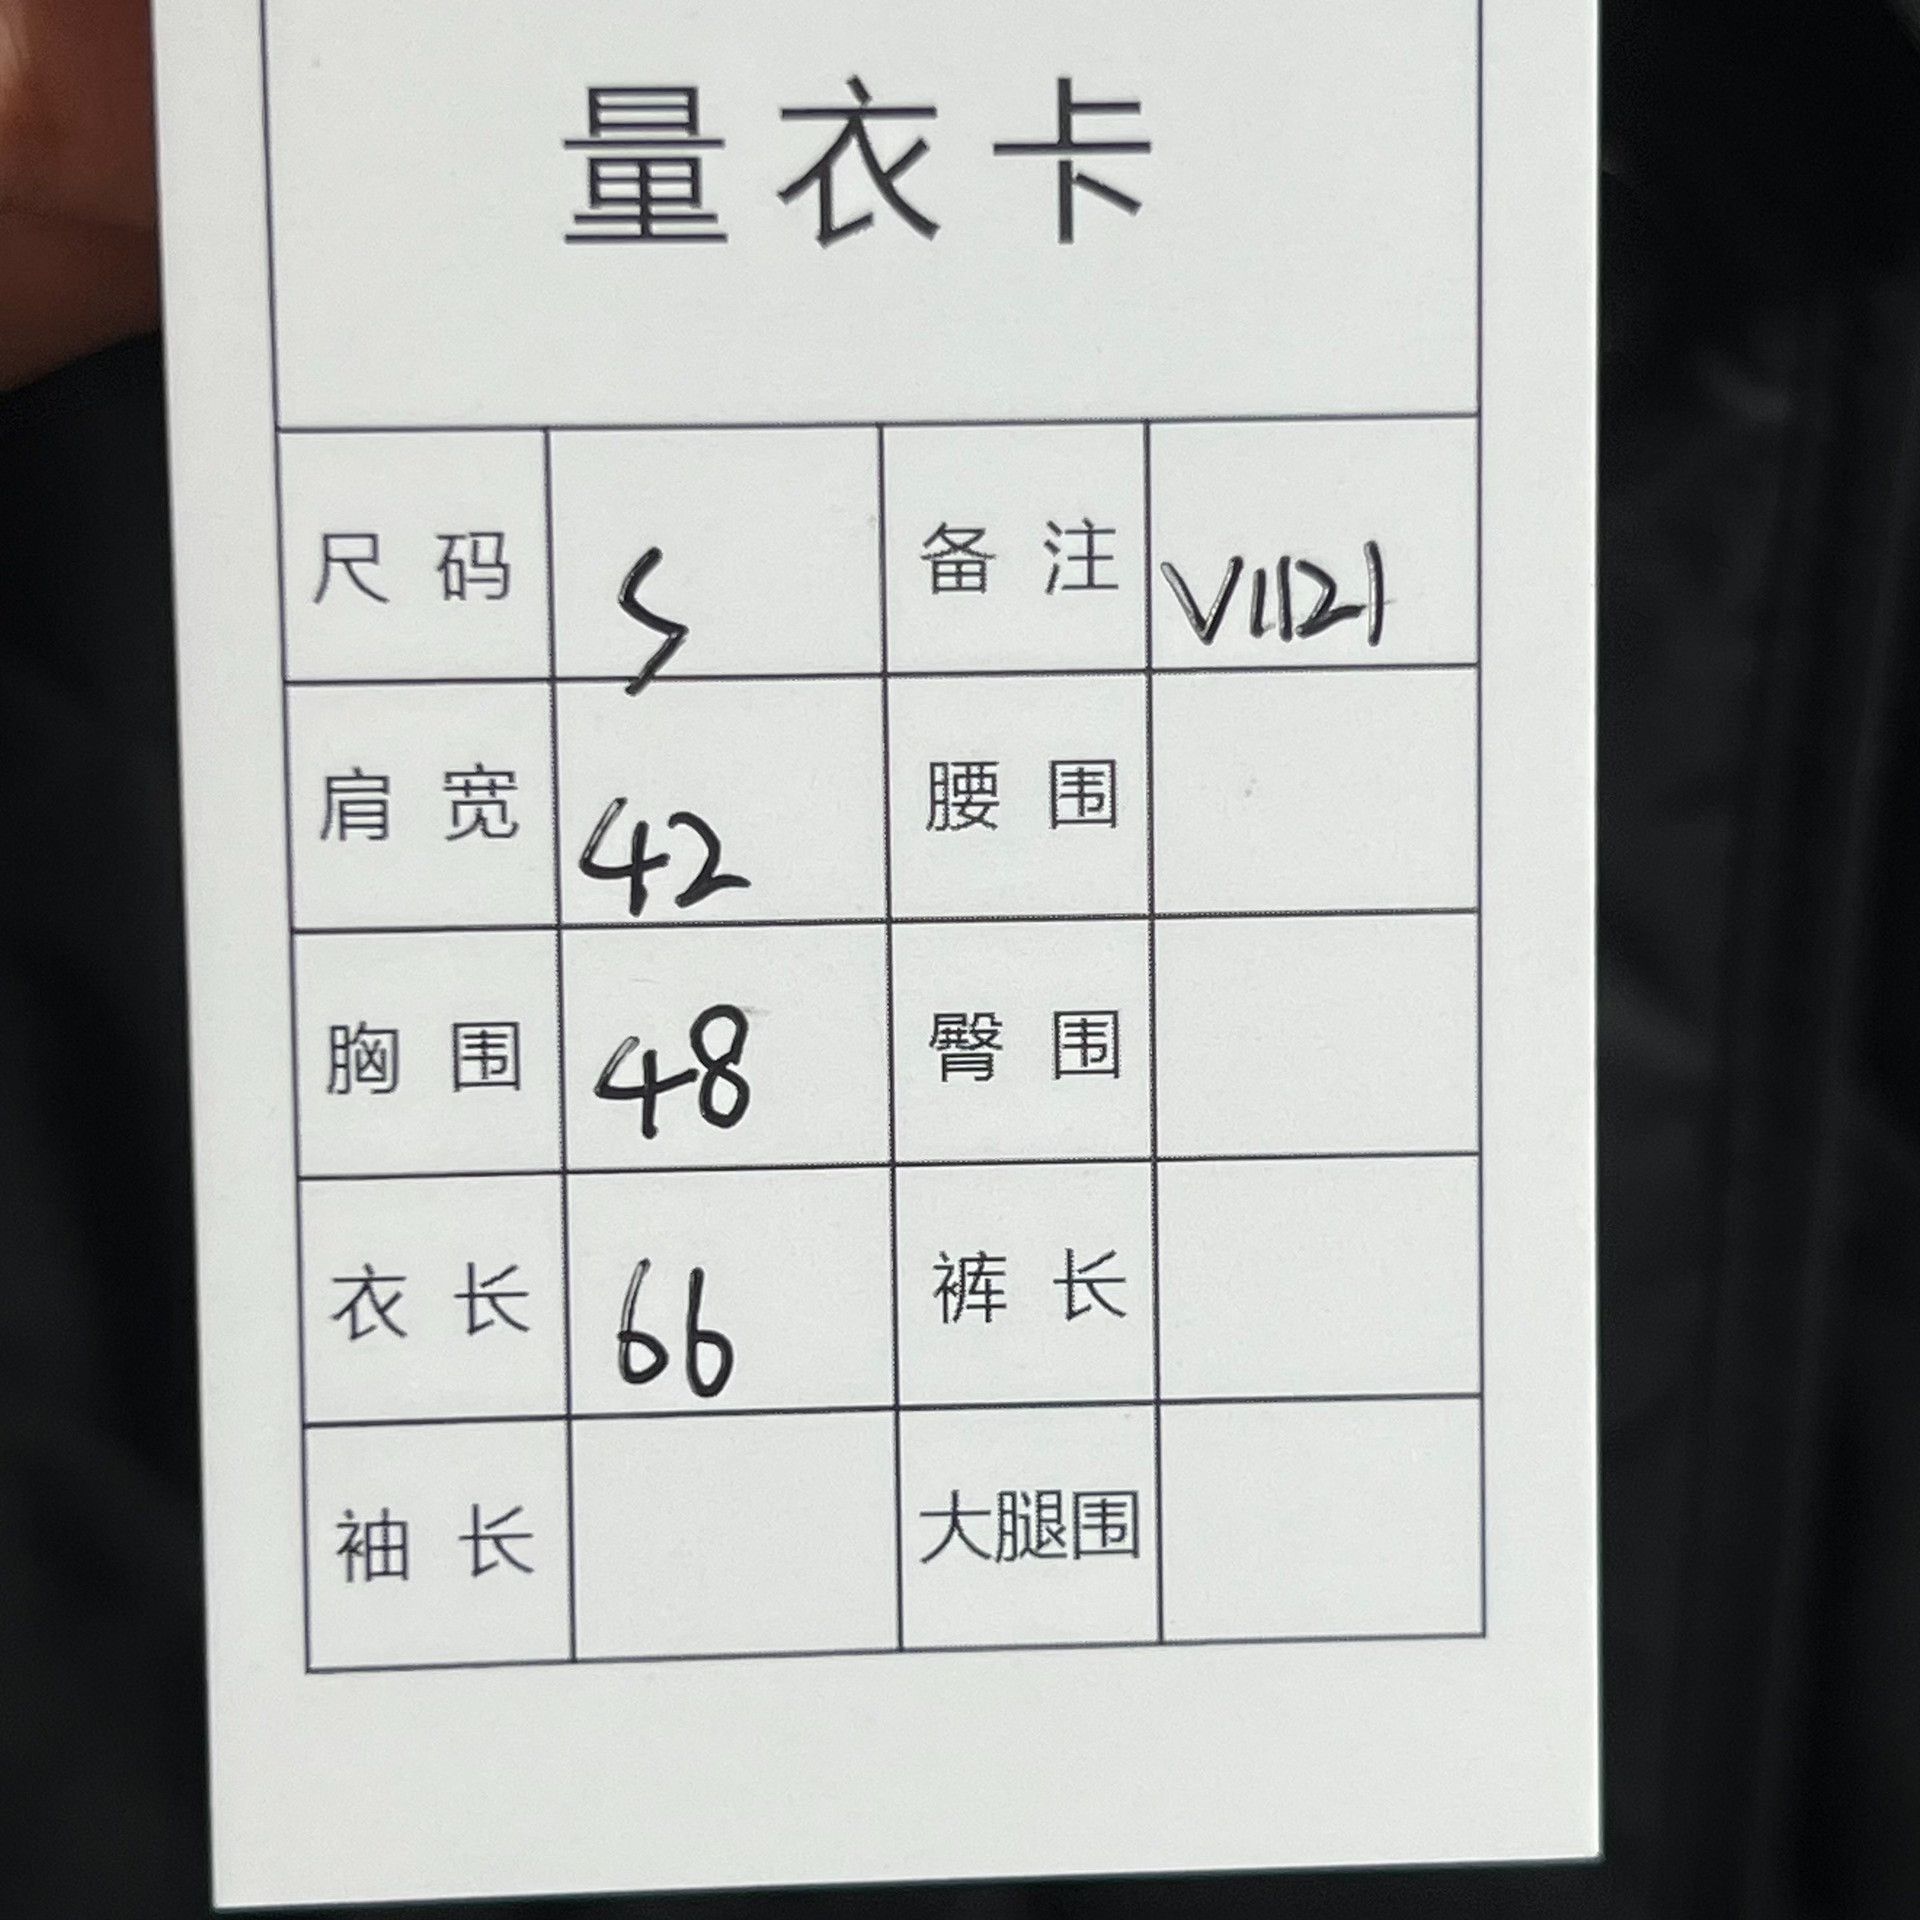 量衣卡
尺码 S 备注 V1121
肩宽 42 腰围
胸围 48 臀围
衣长 66 裤长
袖长 大腿围